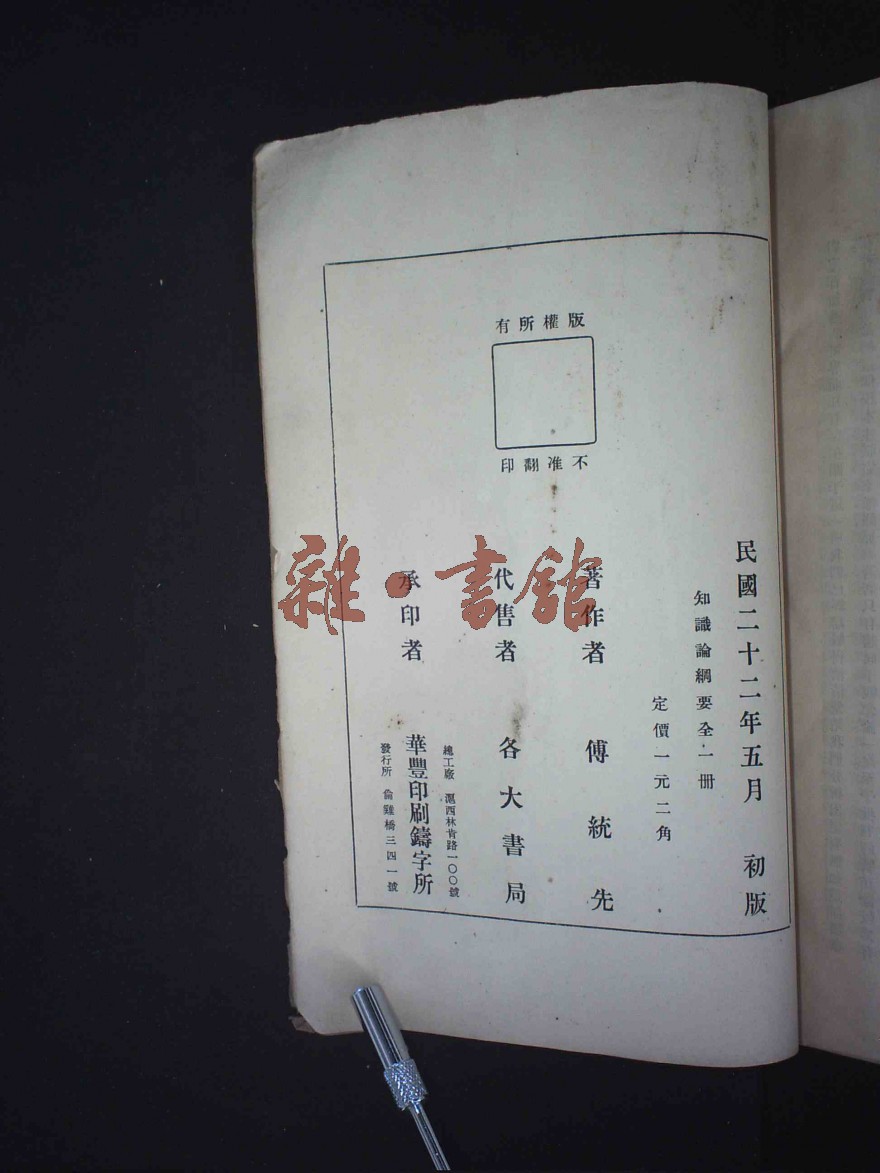 民國二十二年五月 初版
知識論綱要全一册
定價一元二角
版權所有
不准翻印
著作者 傅統先
代售者 各大書局
承印者 華豐印刷鑄字所
總工廠 滬西林肯路一〇〇號
發行所 倫雞橋三四一號
雜·書館